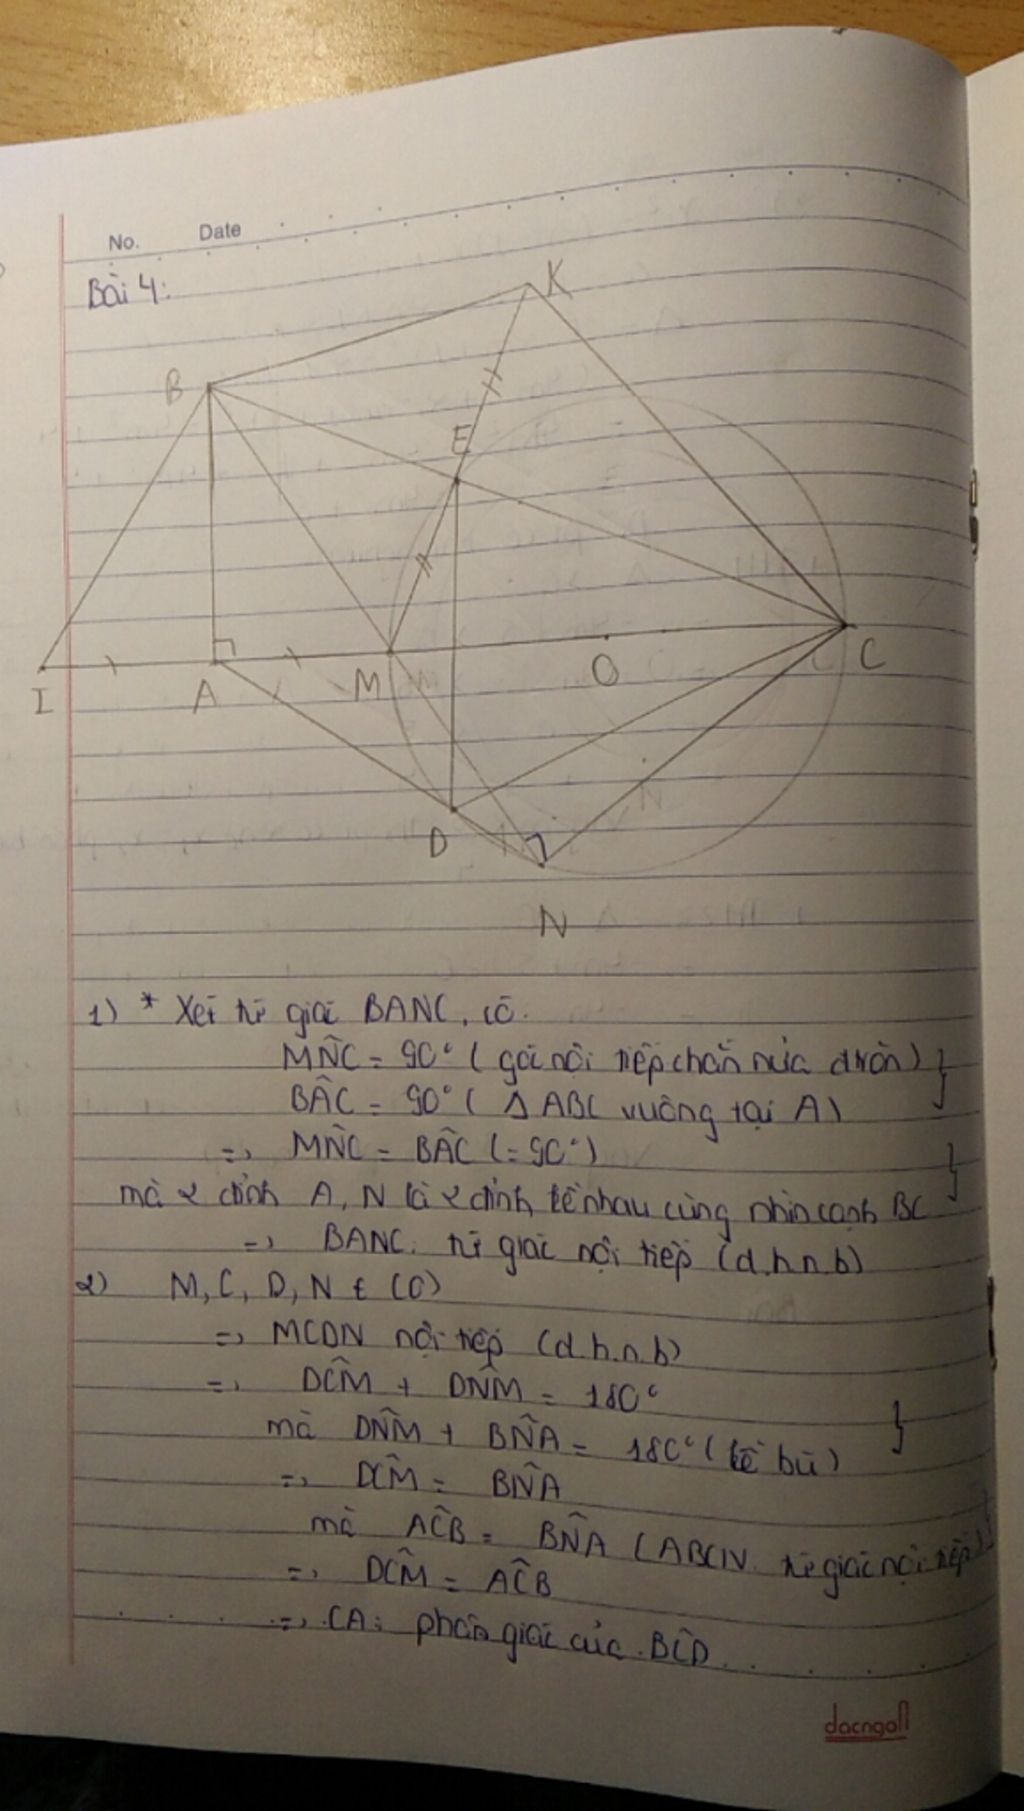 No. Date
Bài 4:
K
B
E
I
A
M
O
C
D
N
1) * Xét tứ giác BANC, có
MN̂C = 90° (góc nội tiếp chắn nửa đtròn) }
BÂC = 90° (Δ ABC vuông tại A)
=> MN̂C = BÂC (=90°) }
mà 2 đỉnh A, N là 2 đỉnh kề nhau cùng nhìn cạnh BC
=> BANC: tứ giác nội tiếp (d.h.n.b)
2) M, C, D, N ∈ (O)
=> MCDN nội tiếp (d.h.n.b)
=> DĈM + DN̂M = 180°
mà DN̂M + BN̂A = 180° (kề bù) }
=> DĈM = BN̂A
mà AĈB = BN̂A (ABCN tứ giác nội tiếp) }
=> DĈM = AĈB
=> CA: phân giác của BĈD
dacngoll